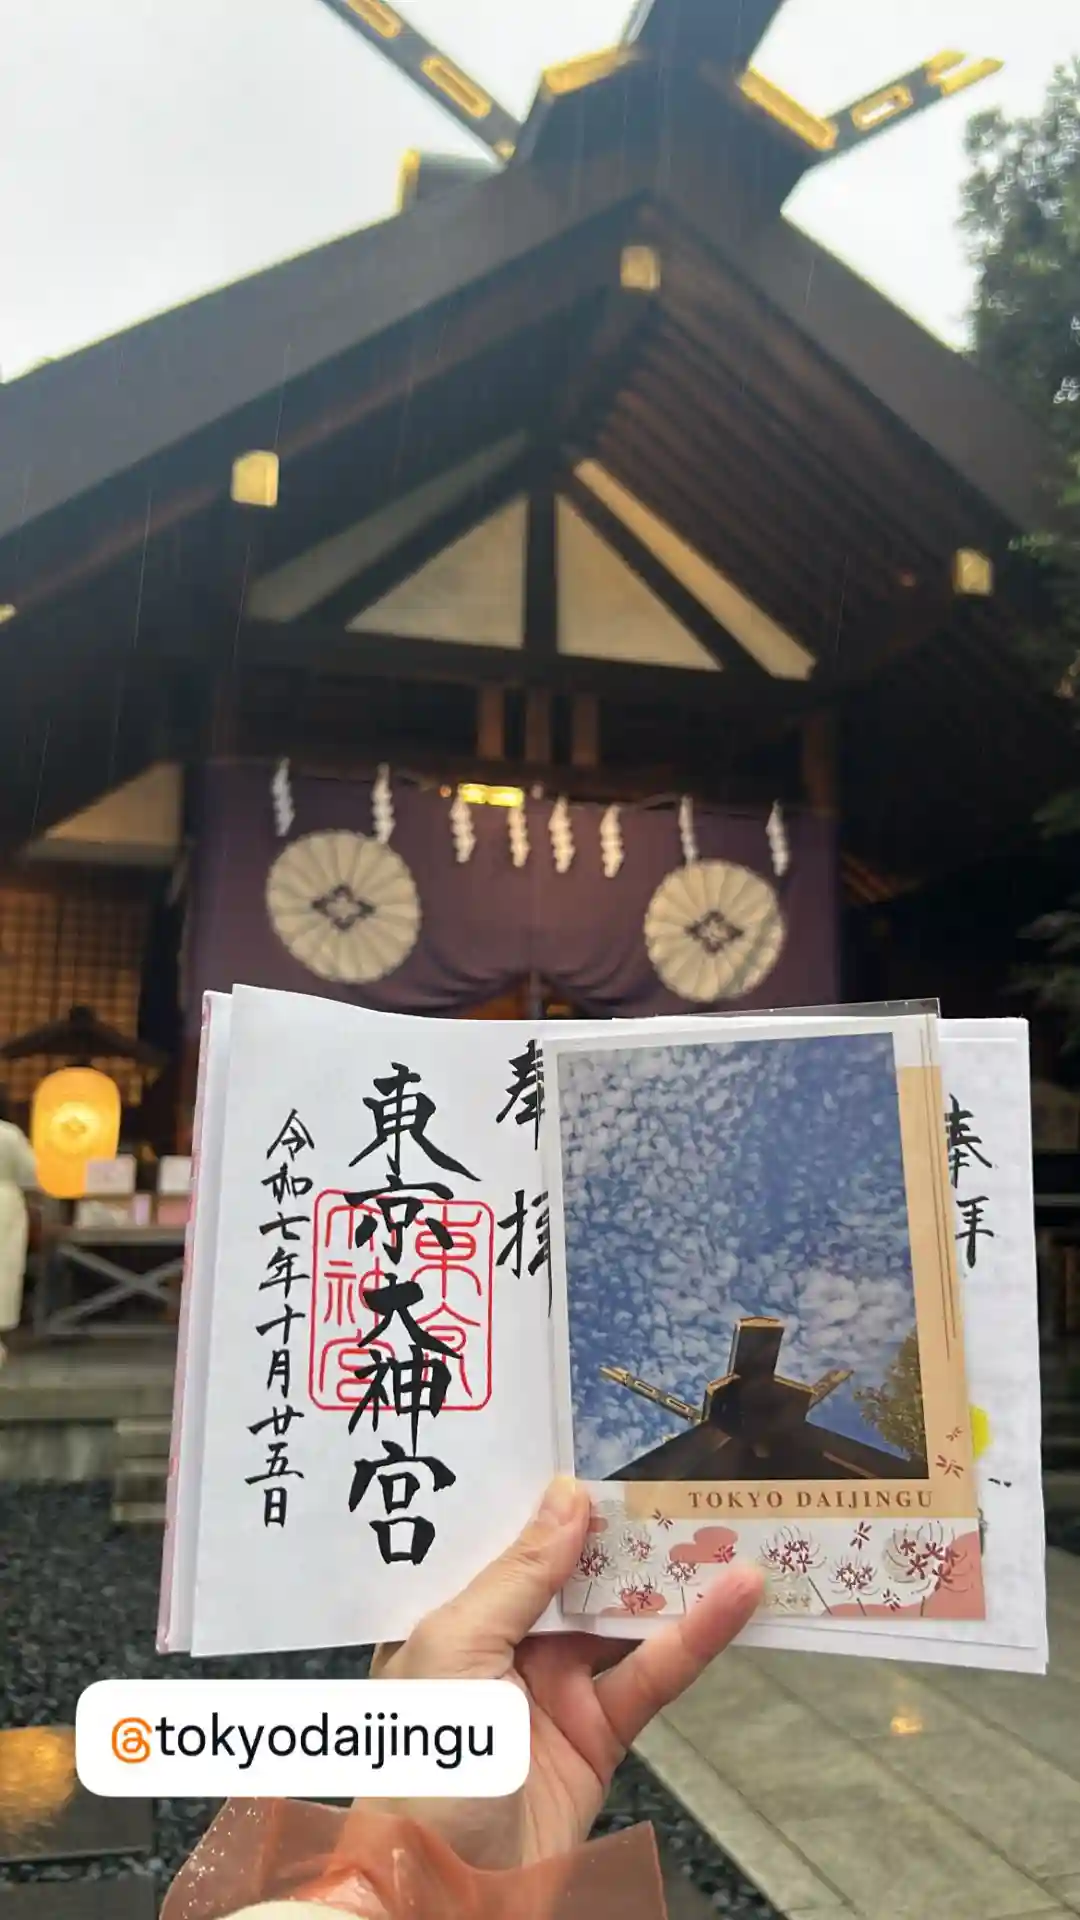 奉拝
東京大神宮
東京大神宮
令和七年十月廿五日
奉拝
TOKYO DAIJINGU
@tokyodaijingu